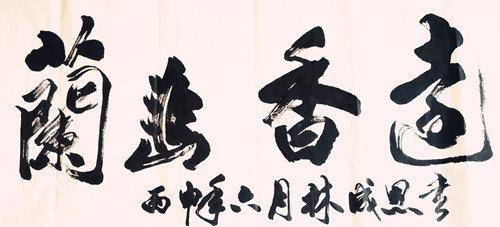 蘭幽香遠
丙申年六月林成思書